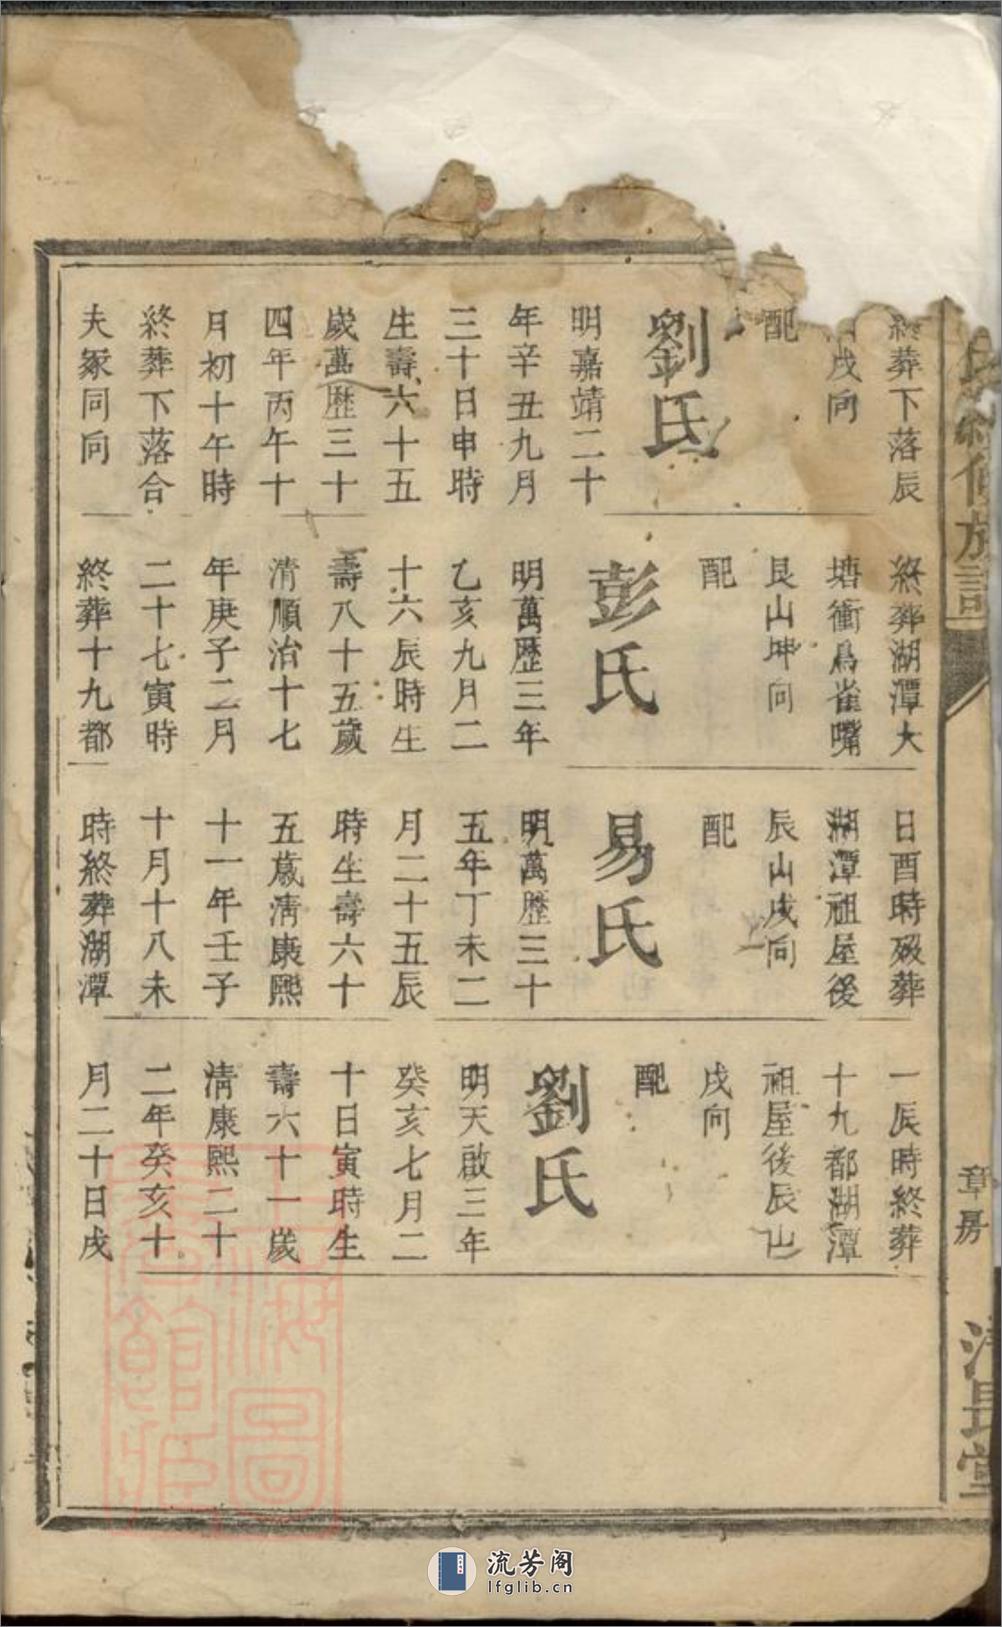 終葬下落辰
戌向
配
劉氏
明嘉靖二十
年辛丑九月
三十日申時
生壽六十五
歲萬歷三十
四年丙午十
月初十午時
終葬下落合
夫冢同向
終葬湖潭大
塘衝鳥雀嘴
艮山坤向
配
彭氏
明萬歷三年
乙亥九月二
十六辰時生
壽八十五歲
清順治十七
年庚子二月
二十七寅時
終葬十九都
日酉時歿葬
湖潭祖屋後
辰山戌向
配
易氏
明萬歷三十
五年丁未二
月二十五辰
時生壽六十
五歲清康熙
十一年壬子
十月十八未
時終葬湖潭
一辰時終葬
十九都湖潭
祖屋後辰山
戌向
配
劉氏
明天啟三年
癸亥七月二
十日寅時生
壽六十一歲
清康熙二十
二年癸亥十
月二十日戌
氏續修族譜
章房
流芳阁
lfglib.cn